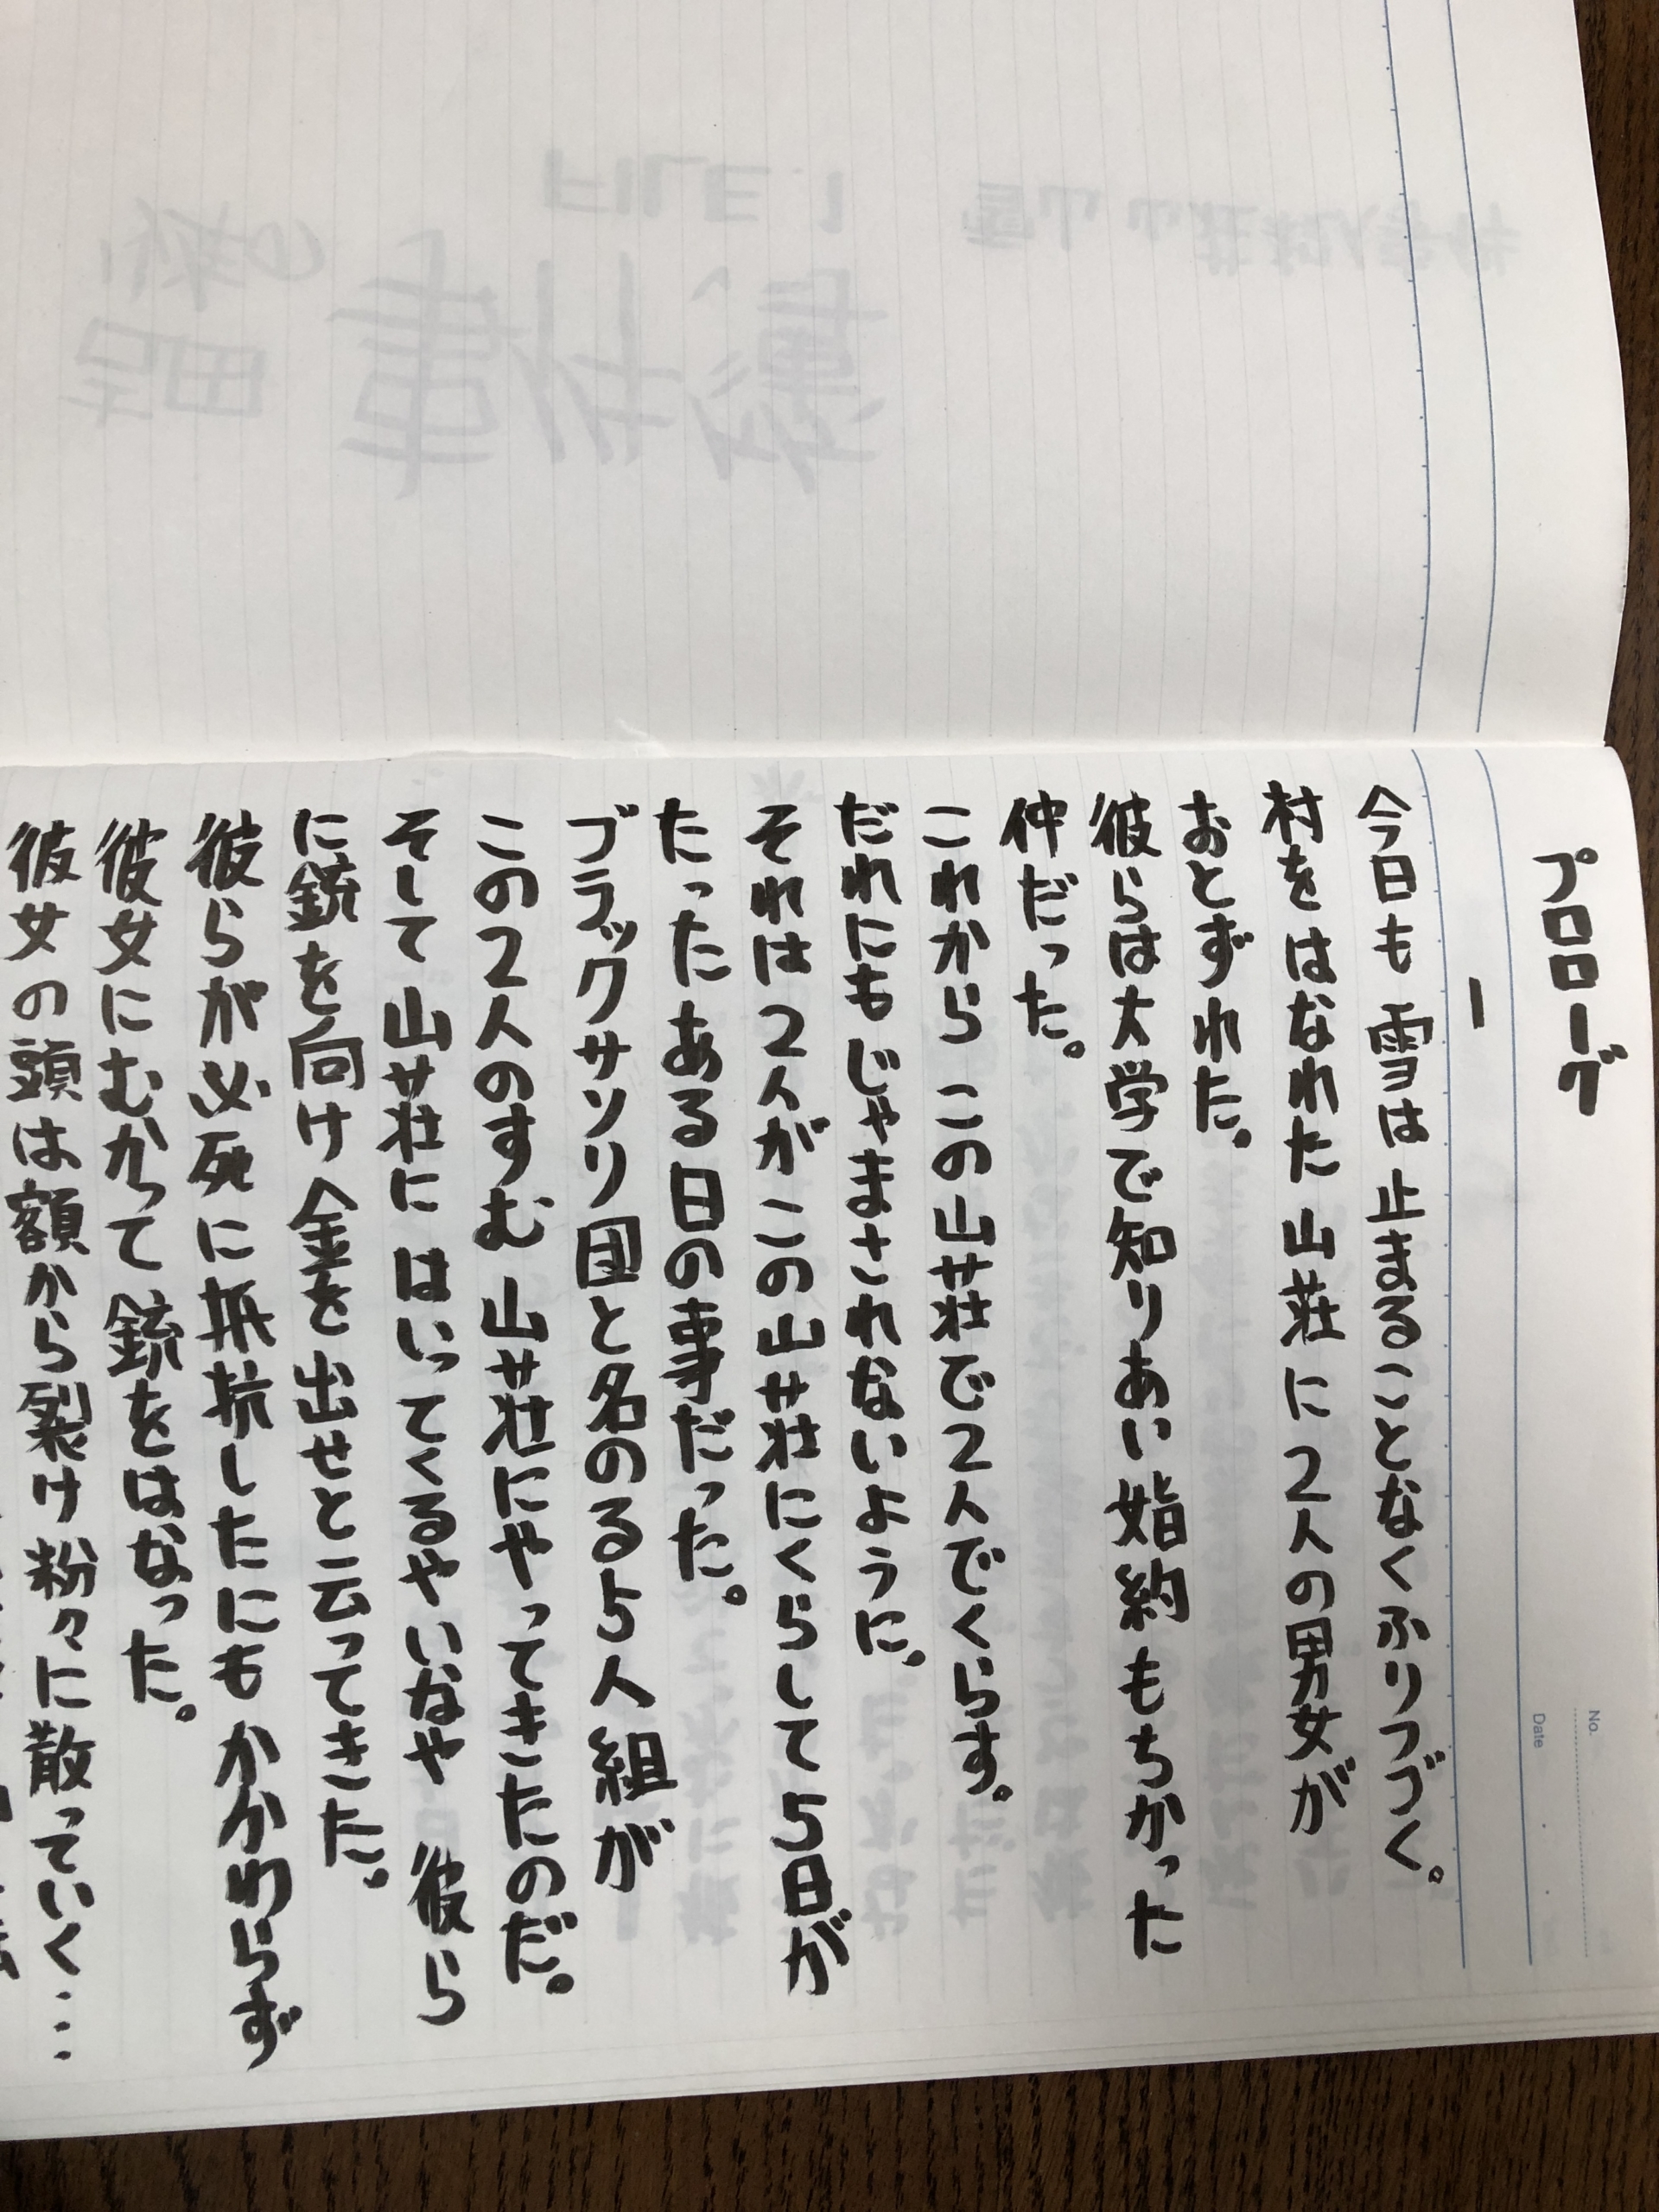 プロローグ
1
今日も雪は止まることなくふりつづく。
村をはなれた山荘に2人の男女が
おとずれた。
彼らは大学で知りあい婚約もちかった
仲だった。
これからこの山荘で2人でくらす。
だれにもじゃまされないように。
それは2人がこの山荘にくらして5日が
たったある日の事だった。
ブラックサソリ団と名のる5人組が
この2人のすむ山荘にやってきたのだ。
そして山荘にはいってくるやいなや彼ら
に銃を向け金を出せと云ってきた。
彼らが必死に抵抗したにもかかわらず
彼女にむかって銃をはなった。
彼女の頭は額から裂け粉々に散っていく……
No.
Date
FILE.1